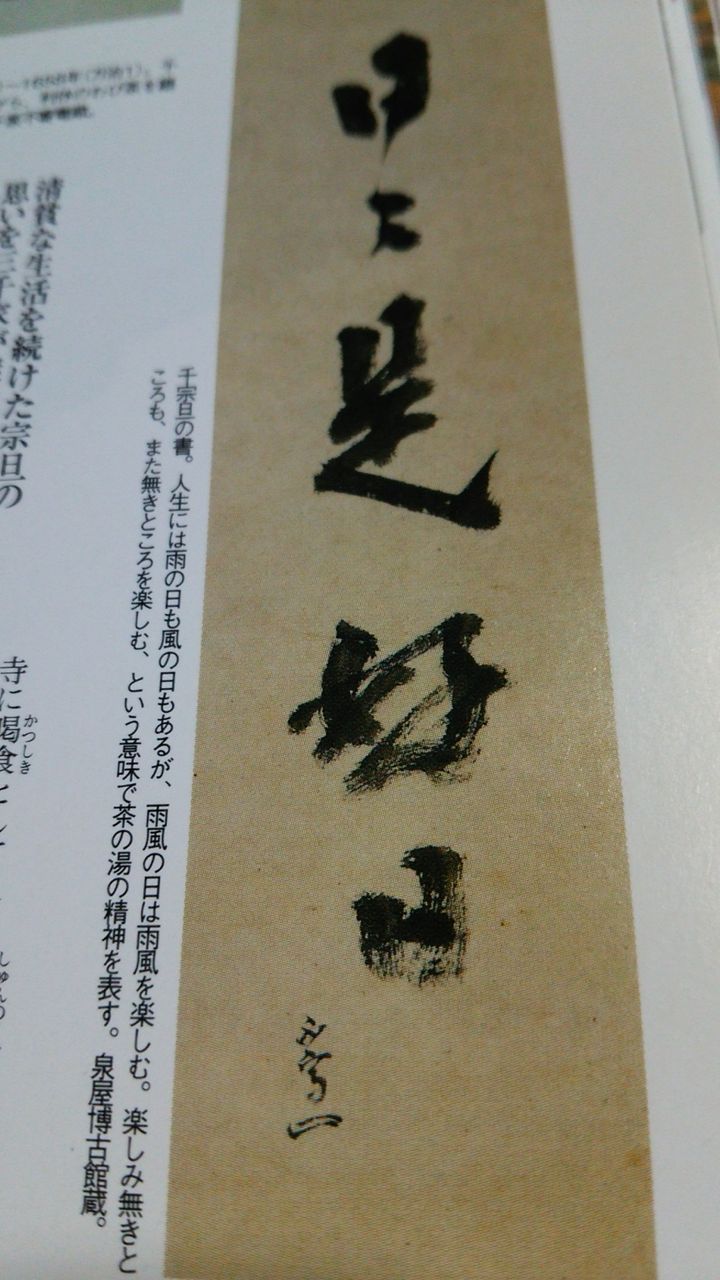 日々是好日
千宗旦の書。人生には雨の日も風の日もあるが、雨風の日は雨風を楽しむ。楽しみ無きと
ころも、また無きところを楽しむ、という意味で茶の湯の精神を表す。泉屋博古館蔵。
清貧な生活を続けた宗旦の
思いを三千家が
寺に喝食と
かつしき